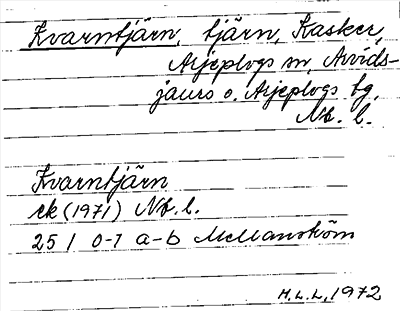 Kvarntjärn, tjärn, Kasker,
Arjeplogs sn, Arvids-
jaurs o. Arjeplogs tg,
Nb. l.
Kvarntjärn
ek (1971) Nb. l.
25 I 0-1 a-b McManström
H.L.L, 1972